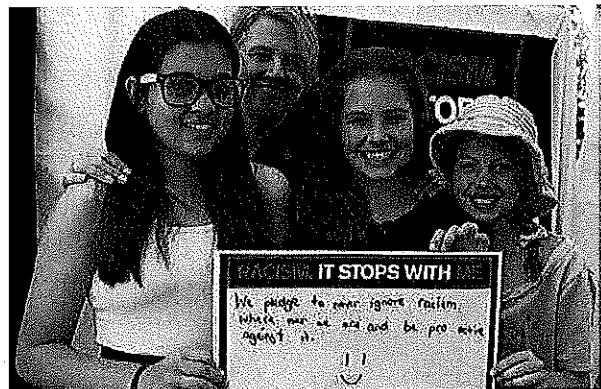 RACISM
TOP
RACISM. IT STOPS WITH ME
We pledge to never ignore racism.
Where ever we are and be pro active
against it.